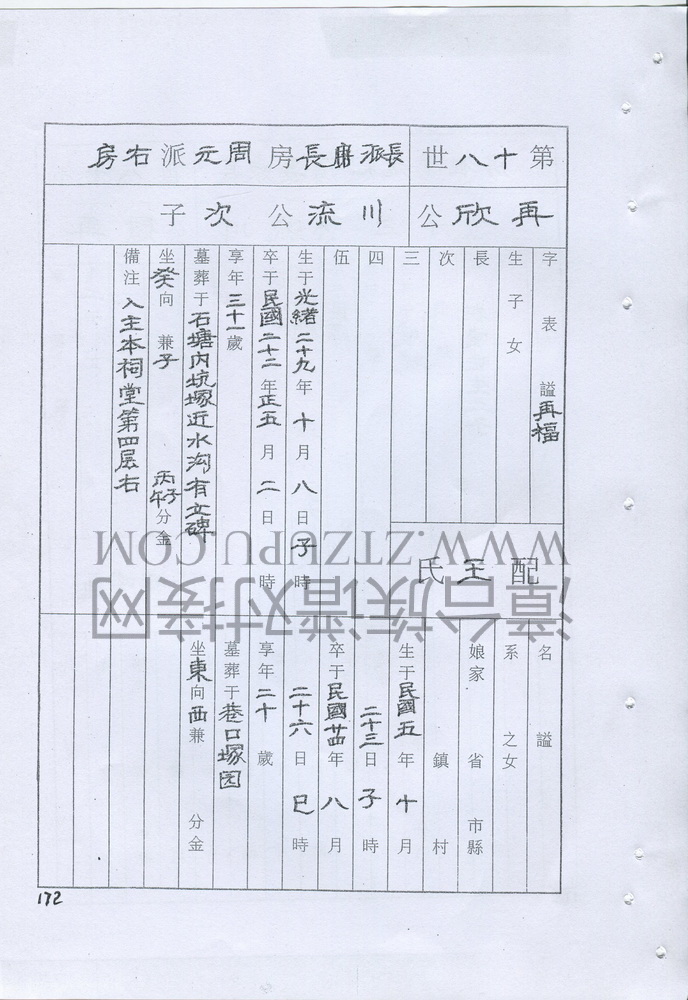 第十八世
長派廟長房周元派右房
再欣公
川流公次子
字表諡再福
生子女
長
次
三
四
伍
生于光緒二十九年十月八日子時
卒于民國二十二年正五月二日時
享年三十一歲
墓葬于石塘内坑塚近水沟有立碑
坐癸向兼子丙子丙午分金
備注入主本祠堂第四层右
配王氏
名諡
系之女
娘家省市縣
鎮村
生于民國五年十月
二十三日子時
卒于民國廿四年八月
二十六日巳時
享年二十歲
墓葬于巷口塚园
坐東向西兼分金
172
WWW.ZTZUPU.COM
漳台族谱对接网